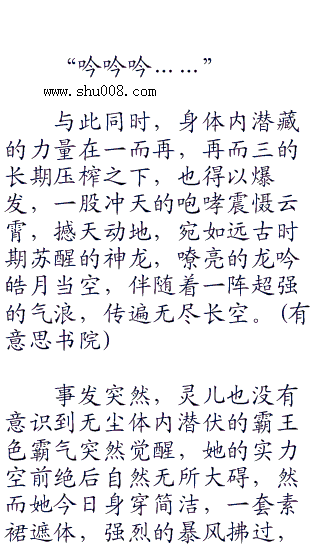 “吟吟吟……”
www.shu008.com
与此同时，身体内潜藏
的力量在一而再，再而三的
长期压榨之下，也得以爆
发，一股冲天的咆哮震慑云
霄，撼天动地，宛如远古时
期苏醒的神龙，嘹亮的龙吟
皓月当空，伴随着一阵超强
的气浪，传遍无尽长空。(有
意思书院)
事发突然，灵儿也没有
意识到无尘体内潜伏的霸王
色霸气突然觉醒，她的实力
空前绝后自然无所大碍，然
而她今日身穿简洁，一套素
裙遮体，强烈的暴风拂过，